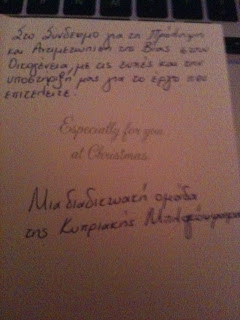 Στο Σύνδεσμο για τη Πρόληψη
και Αντιμετώπιση της Βίας στην
Οικογένεια, με τις ευχές και την
υποστήριξή μας για το έργο που
επιτελείτε.
Especially for you
at Christmas
Μια διαδικτυακή ομάδα
της Κυπριακής